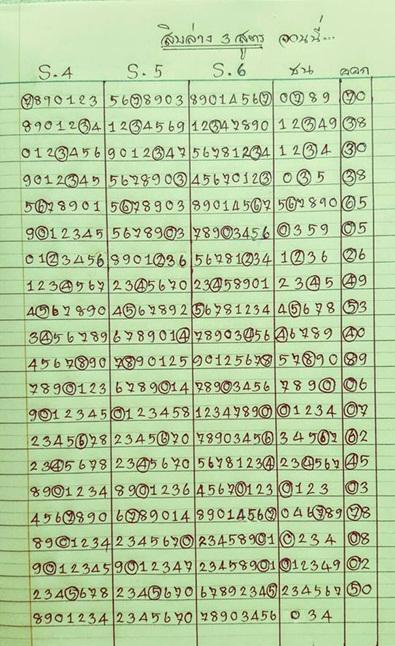 สิบล่าง 3 สูตร งวดนี้...
S.4 S.5 S.6 ชน ออก
7890123 5678903 89014567 0789 70
8901234 1234569 12347890 12349 38
0123456 9012347 56781234 1234 30
9012345 5678903 45670123 035 38
5678901 5678903 89014567 567890 65
9012345 5678903 78903456 0359 05
0123456 8901236 56781234 1236 26
1234567 2345670 23458901 2345 49
4567890 4567892 56781234 45678 53
3456789 6789014 78903456 46789 40
4567890 7890125 90125678 57890 89
7890123 6789014 78903456 7890 06
9012345 0123458 12347890 01234 07
2345678 2345670 78903456 34567 62
2345678 2345670 56781234 234567 45
8901234 8901236 45670123 0123 03
4567890 6789014 89014567 046789 78
8901234 2345670 23458901 0234 08
9012345 9012347 23458901 012349 02
2345678 2345670 67892345 234567 50
8901234 2345670 78903456 034